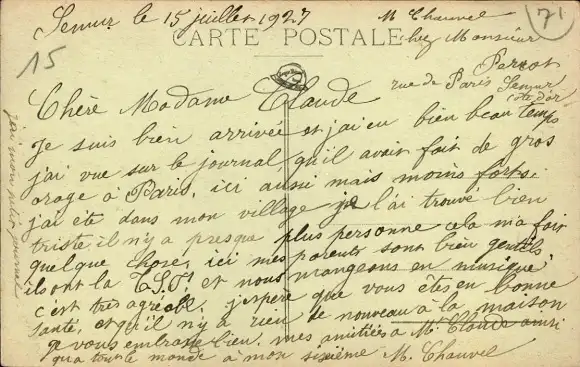 Semur le 15 juillet 1927
M Chauvel
71
CARTE POSTALE
chez Monsieur
15
Perrot
rue de Paris Semur
côte d'or
Chère Madame Claude
Je suis bien arrivée et j'ai eu bien beau temps
j'ai vue sur le journal, qu'il avait fait de gros
orage à Paris, ici aussi mais moins forts.
j'ai été dans mon village je l'ai trouvé bien
triste il n'y a presque plus personne cela m'a fait
quelque chose, ici mes parents sont bien gentils
ils ont la T.S.F. et nous mangeons en musique
c'est très agréable j'espère que vous êtes en bonne
santé, et qu'il n'y a rien de nouveau à la maison
je vous embrasse bien, mes amitiées à Mr Claude ainsi
qu'a tout le monde à mon sixième M. Chauvel
j'ai mon